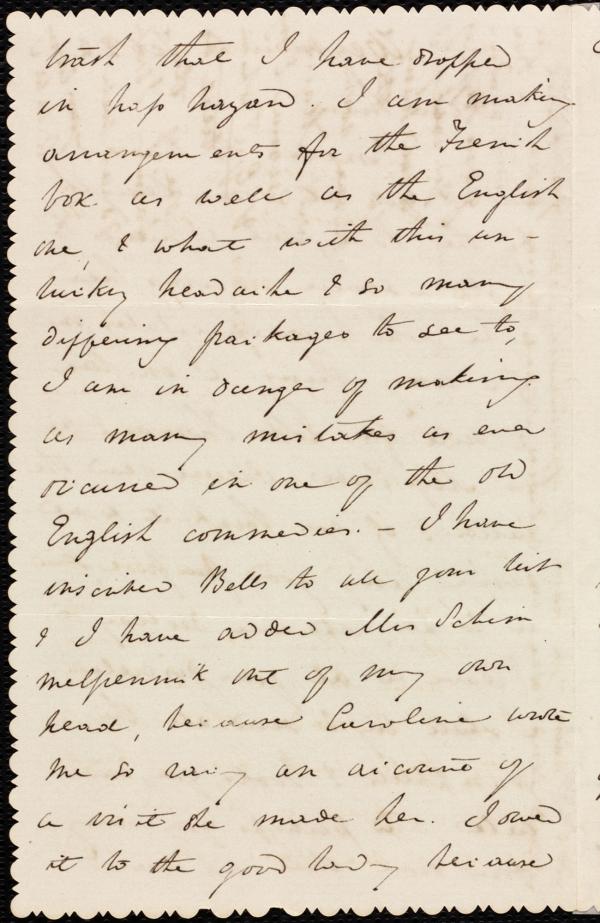 trash that I have dropped
in hap hazard. I am making
arrangements for the French
box as well as the English
one, & what with this un-
lucky headache & so many
differing packages to see to,
I am in danger of making
as many mistakes as ever
occurred in one of the old
English commedies. – I have
inscribed Bells to all your list
& I have added Mrs Schim
melpennick out of my own
head, because Caroline wrote
me so racy an account of
a visit she made her. I owed
it to the good lady because